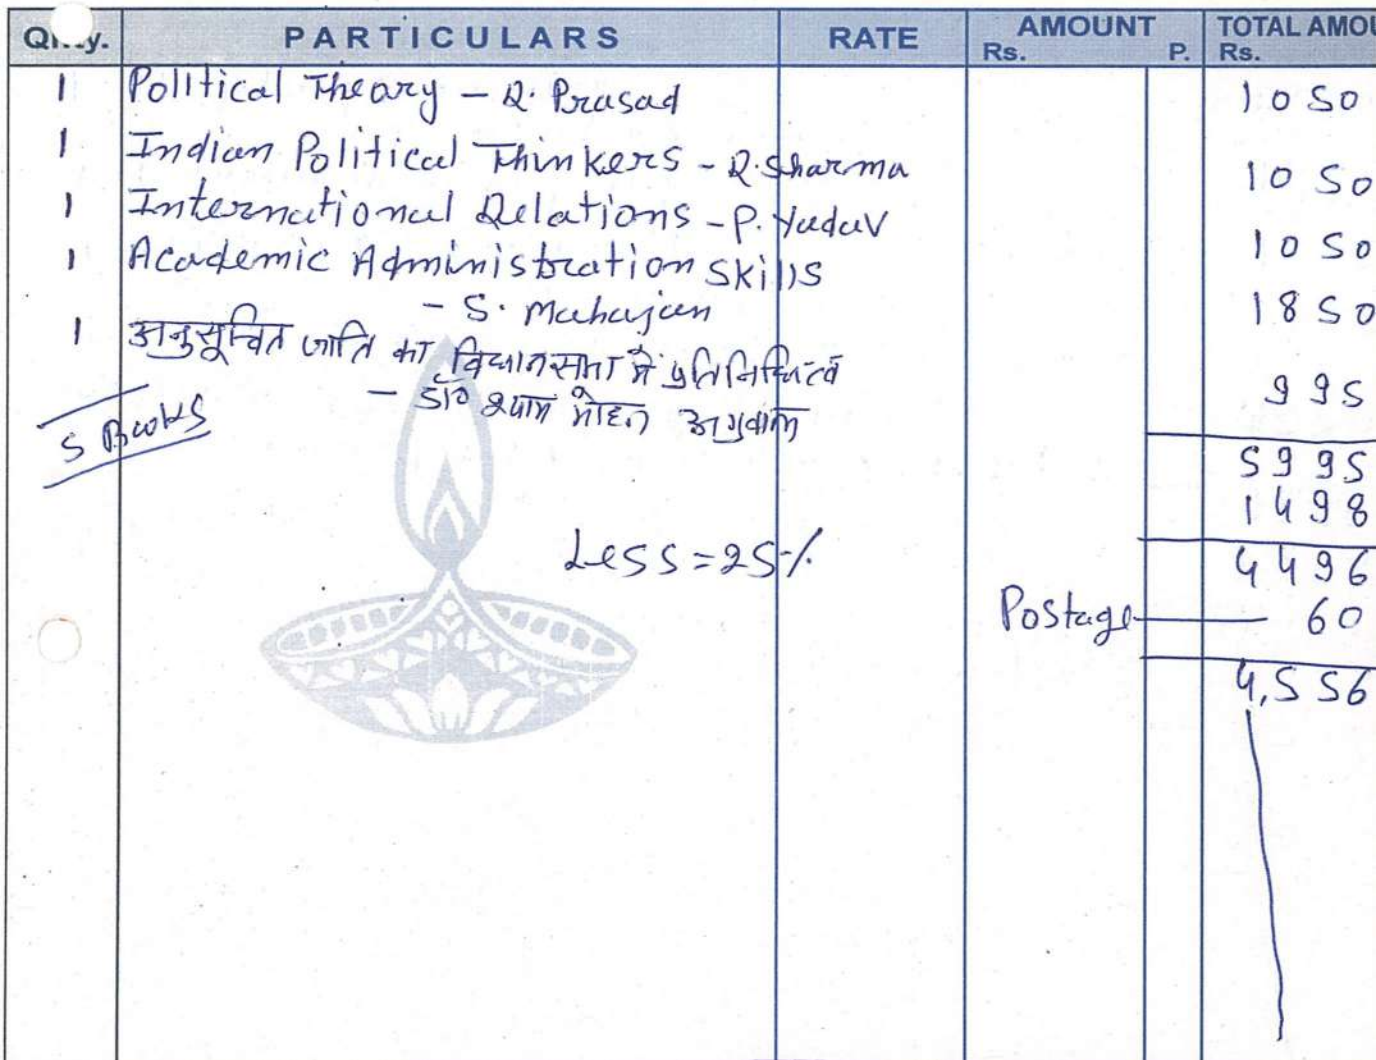 Qnty. PARTICULARS RATE AMOUNT Rs. P. TOTAL AMOU Rs.
1 Political Theory – R. Prasad 1050
1 Indian Political Thinkers – R. Sharma 1050
1 International Relations – P. Yadav 1050
1 Academic Administration Skills 1850
– S. Mahajan
1 अनुसूचित जाति का विधानसभा में प्रतिनिधित्व 995
– डॉ० श्याम मोहन अग्रवाल
5 Books
5995
1498
Less = 25%
4496
Postage 60
4,556